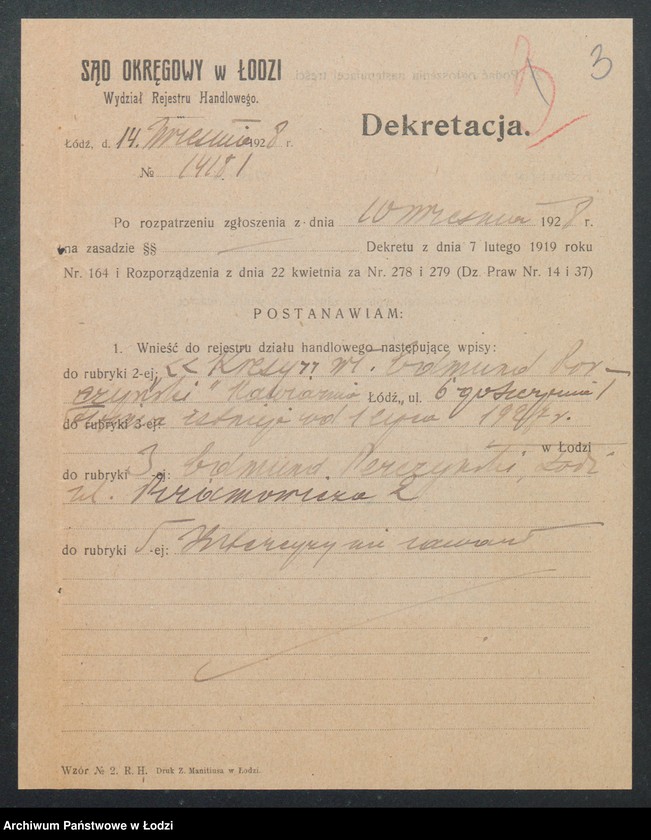 SĄD OKRĘGOWY w ŁODZI
Wydział Rejestru Handlowego.
3
Dekretacja.
Łódź, d. 14. Września 1928 r.
№ 14181
Po rozpatrzeniu zgłoszenia z dnia 10 września 1928 r.
na zasadzie §§ Dekretu z dnia 7 lutego 1919 roku
Nr. 164 i Rozporządzenia z dnia 22 kwietnia za Nr. 278 i 279 (Dz. Praw Nr. 14 i 37)
POSTANAWIAM:
1. Wnieść do rejestru działu handlowego następujące wpisy:
do rubryki 2-ej: "Kresy" wł. Edmund Por-
czyński" Kawiarnia Łódź, ul. 6 go sierpnia 1
do rubryki 3-ej: istnieje od 1 lipca r.
w Łodzi
do rubryki 3-ej: Edmund Porczyński, Łódź
ul. 2
do rubryki 5-ej: Intercyzy nie zawarł
Wzór № 2. R. H. Druk Z. Manitiusa w Łodzi.
Archiwum Państwowe w Łodzi